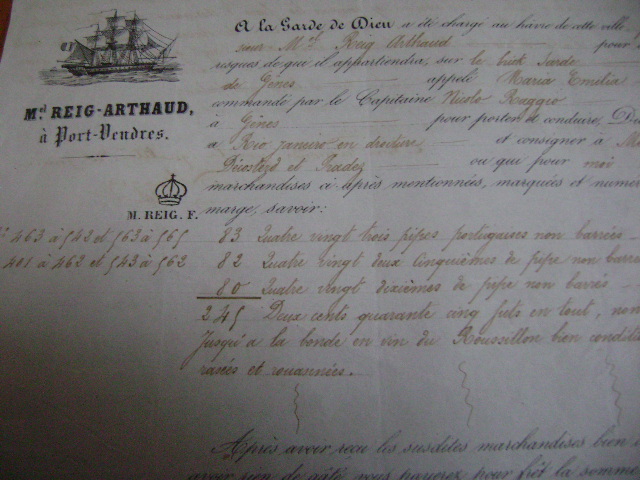 Mel REIG-ARTHAUD,
à Port-Vendres.
M. REIG. F.
A la Garde de Dieu a été chargé au hâvre de cette ville
sieur Mel Reig Arthaud pour
risques de qui il appartiendra, sur le brick Sarde
de Gênes appelé Maria Emilia
commandé par le Capitaine Nicolo Raggio
à Gênes pour porter et conduire,
à Rio Janeiro en droiture, et consigner à
Décosterd et Pradez ou qui pour moi
marchandises ci-après mentionnées, marquées et
marge, savoir:
463 à 542 et 563 à 565 83 Quatre vingt trois pipes portugaises non barriées
401 à 462 et 543 à 562 82 Quatre vingt deux cinquièmes de pipe non
80 Quatre vingt dixièmes de pipe non barrés
245 Deux cents quarante cinq futs en tout,
Jusqu'à la bonde en vin du Roussillon bien
rasées et rouannées.
Après avoir reçu les susdites marchandises bien
avoir rien de gâté, vous payerez pour frêt la somme